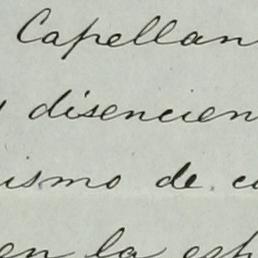 Capellan
disencien
ismo de c
en la esp